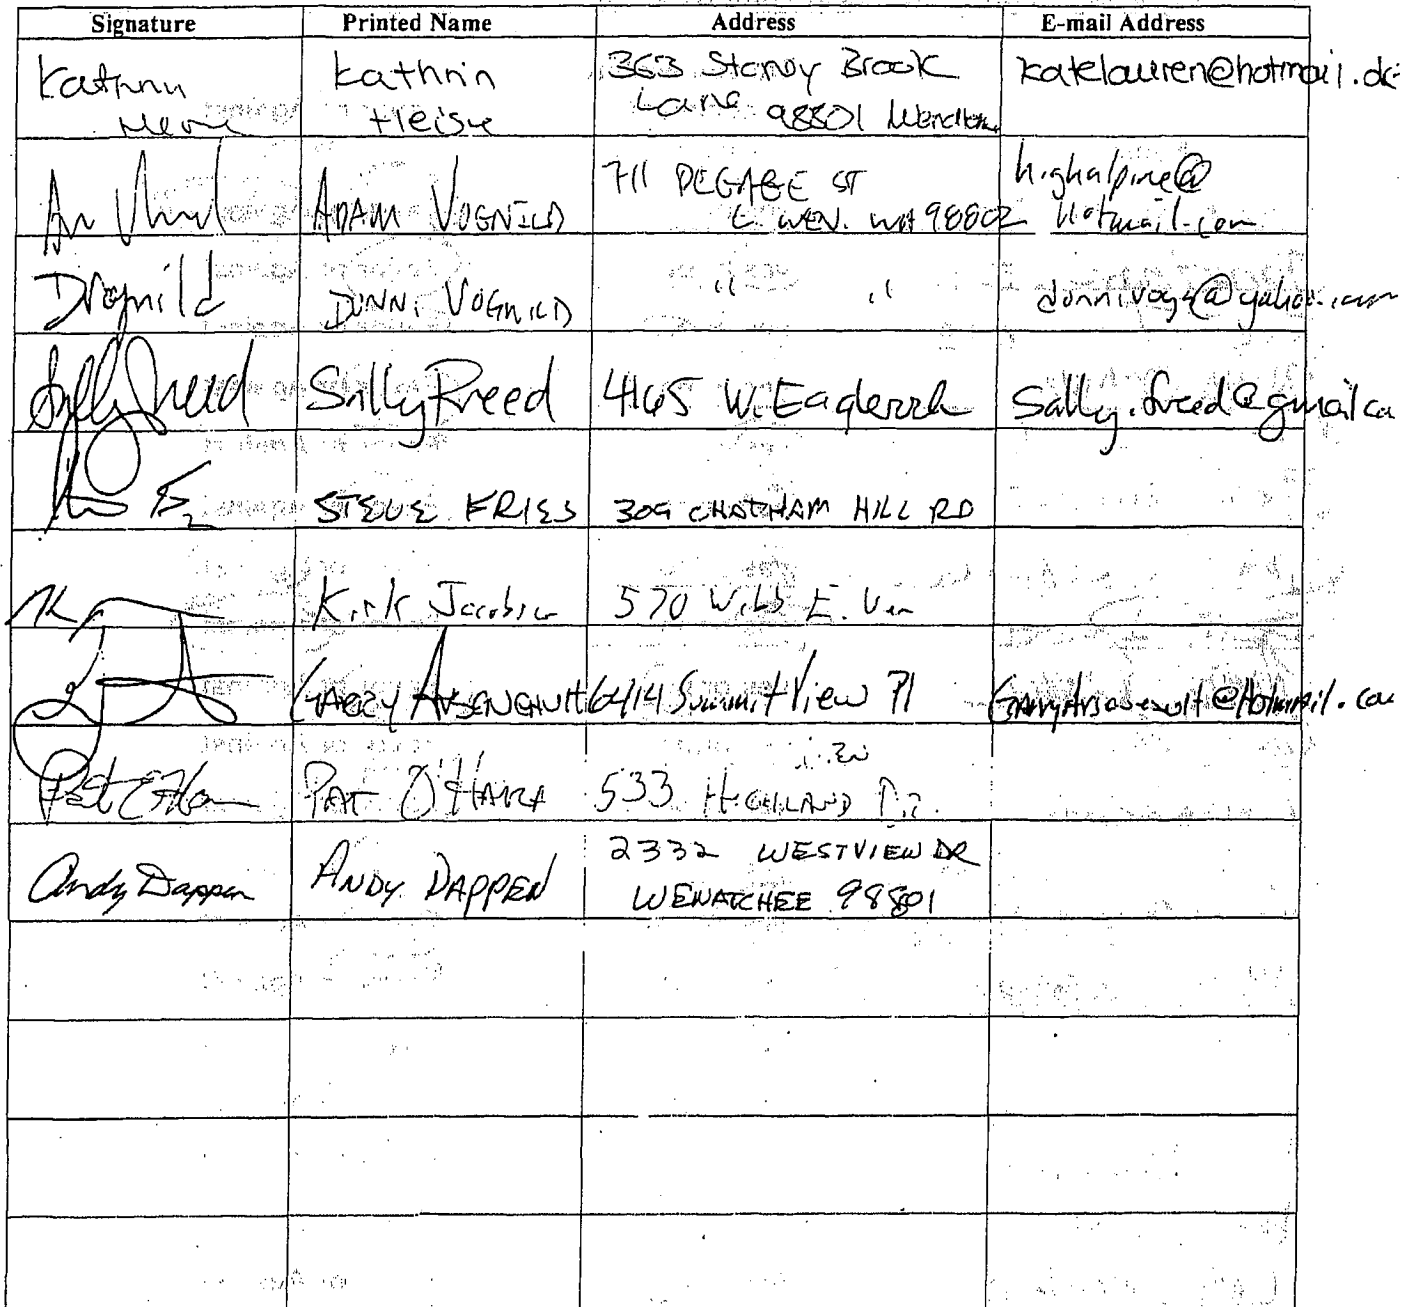 Signature Printed Name Address E-mail Address
Kathrin Kathrin 363 Stoney Brook katelauren@hotmail.de
Heise Heise Lane 98801 Wenatchee
ADAM VOGNILD 711 DEGAGE ST highalpine@
E. WEN. WA 98802 hotmail.com
DVognild DONNI VOGNILD " " donnivogs@yahoo.com
Sally Freed Sally Freed 4165 W. Eaglerock Sally.freed@gmail.co
STEVE FRIES 309 CHATHAM HILL RD
Kirk Jacobsen 570 E.
GARRY ARSENEAULT 6414 Summit View Pl GarryArseneault@Hotmail.com
Pat O'Hara PAT O'HARA 533 HIGHLAND Dr.
Andy Dappen ANDY DAPPEN 2332 WESTVIEW DR
WENATCHEE 98801